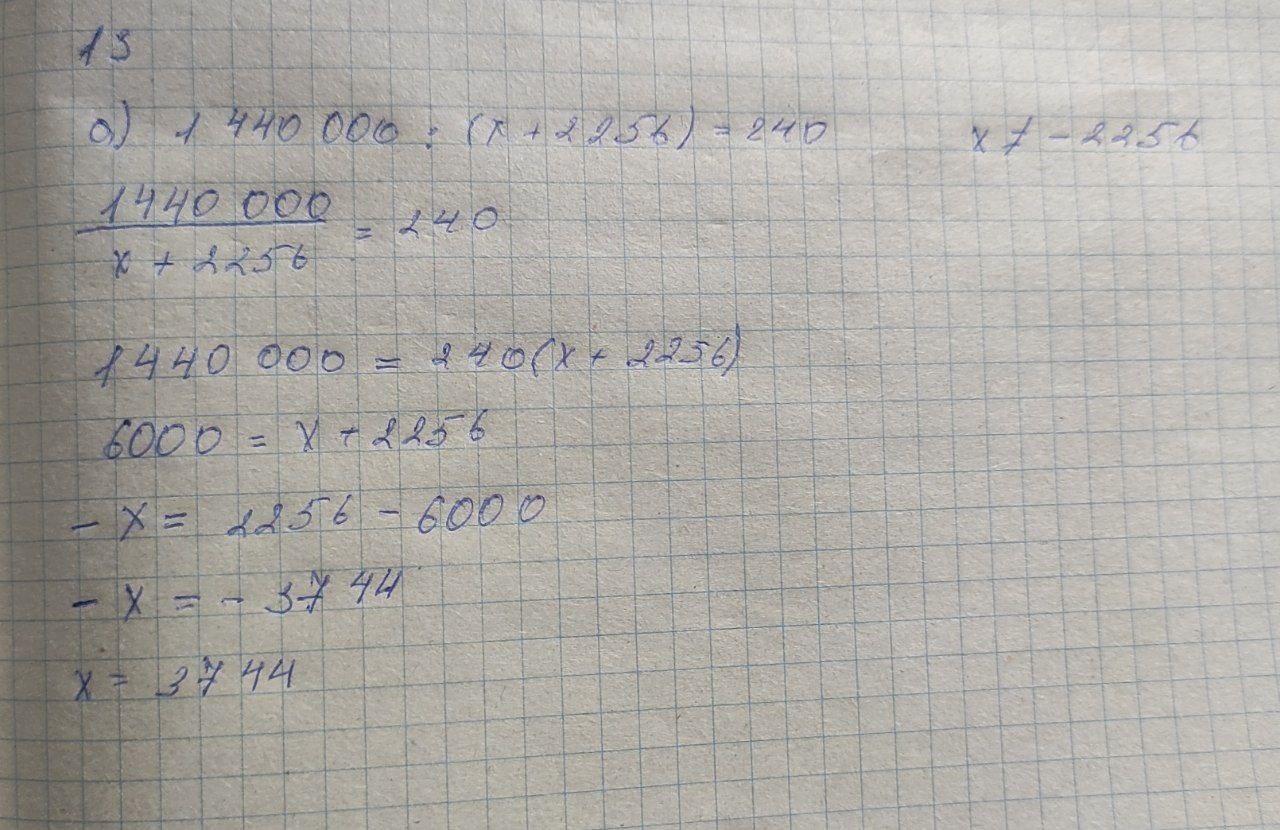 13
а) 1 440 000 : (x + 2256) = 240 x ≠ - 2256
1440 000 / x + 2256 = 240
1440 000 = 240(x + 2256)
6000 = x + 2256
- x = 2256 - 6000
- x = - 3744
x = 3744